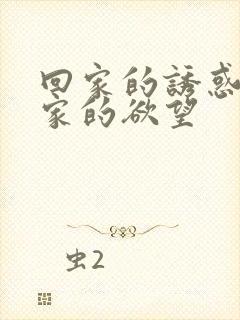 回家的誘惑
家的欲望
虫2